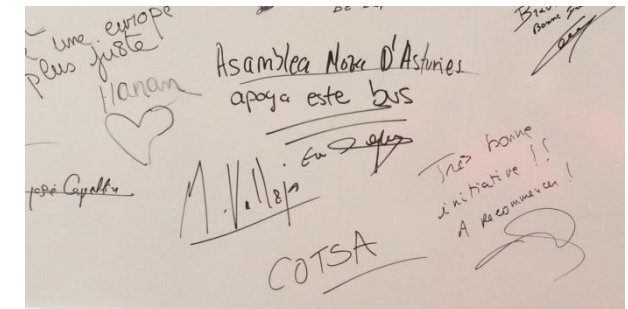 une europe
plus juste
Hanan
Asamblea Moza D'Asturies
apoya este bus
José
M. Vallejo
COTSA
Très bonne
initiative !!
A recommencer !
Bonne